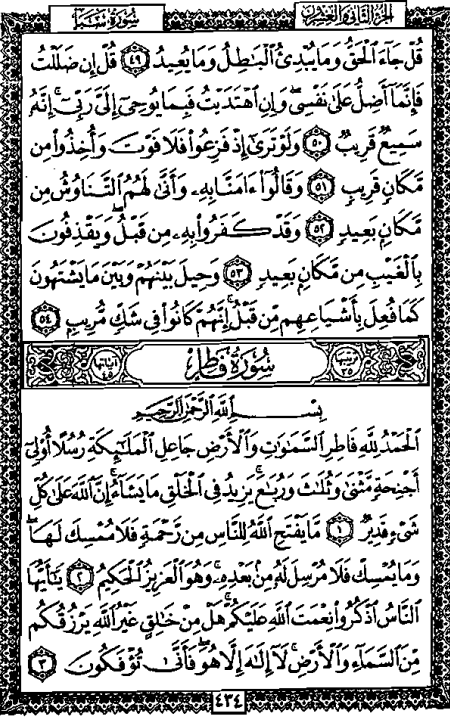 الجزء الثاني والعشرون
سورة سبأ
قُلْ جَآءَ ٱلْحَقُّ وَمَا يُبْدِئُ ٱلْبَٰطِلُ وَمَا يُعِيدُ ٤٩ قُلْ إِن ضَلَلْتُ
فَإِنَّمَآ أَضِلُّ عَلَىٰ نَفْسِى وَإِنِ ٱهْتَدَيْتُ فَبِمَا يُوحِىٓ إِلَىَّ رَبِّىٓ إِنَّهُۥ
سَمِيعٌ قَرِيبٌ ٥٠ وَلَوْ تَرَىٰٓ إِذْ فَزِعُوا۟ فَلَا فَوْتَ وَأُخِذُوا۟ مِن
مَّكَانٍ قَرِيبٍ ٥١ وَقَالُوٓا۟ ءَامَنَّا بِهِۦ وَأَنَّىٰ لَهُمُ ٱلتَّنَاوُشُ مِن
مَّكَانٍۭ بَعِيدٍ ٥٢ وَقَدْ كَفَرُوا۟ بِهِۦ مِن قَبْلُ وَيَقْذِفُونَ
بِٱلْغَيْبِ مِن مَّكَانٍۭ بَعِيدٍ ٥٣ وَحِيلَ بَيْنَهُمْ وَبَيْنَ مَا يَشْتَهُونَ
كَمَا فُعِلَ بِأَشْيَاعِهِم مِّن قَبْلُ إِنَّهُمْ كَانُوا۟ فِى شَكٍّ مُّرِيبٍۭ ٥٤
ترتيبها ٣٥ سورة فاطر آياتها ٤٥
بِسْمِ ٱللَّهِ ٱلرَّحْمَٰنِ ٱلرَّحِيمِ
ٱلْحَمْدُ لِلَّهِ فَاطِرِ ٱلسَّمَٰوَٰتِ وَٱلْأَرْضِ جَاعِلِ ٱلْمَلَٰٓئِكَةِ رُسُلًا أُو۟لِىٓ
أَجْنِحَةٍ مَّثْنَىٰ وَثُلَٰثَ وَرُبَٰعَ يَزِيدُ فِى ٱلْخَلْقِ مَا يَشَآءُ إِنَّ ٱللَّهَ عَلَىٰ كُلِّ
شَىْءٍ قَدِيرٌ ١ مَّا يَفْتَحِ ٱللَّهُ لِلنَّاسِ مِن رَّحْمَةٍ فَلَا مُمْسِكَ لَهَا
وَمَا يُمْسِكْ فَلَا مُرْسِلَ لَهُۥ مِنۢ بَعْدِهِۦ وَهُوَ ٱلْعَزِيزُ ٱلْحَكِيمُ ٢ يَٰٓأَيُّهَا
ٱلنَّاسُ ٱذْكُرُوا۟ نِعْمَتَ ٱللَّهِ عَلَيْكُمْ هَلْ مِنْ خَٰلِقٍ غَيْرُ ٱللَّهِ يَرْزُقُكُم
مِّنَ ٱلسَّمَآءِ وَٱلْأَرْضِ لَآ إِلَٰهَ إِلَّا هُوَ فَأَنَّىٰ تُؤْفَكُونَ ٣
٤٣٤